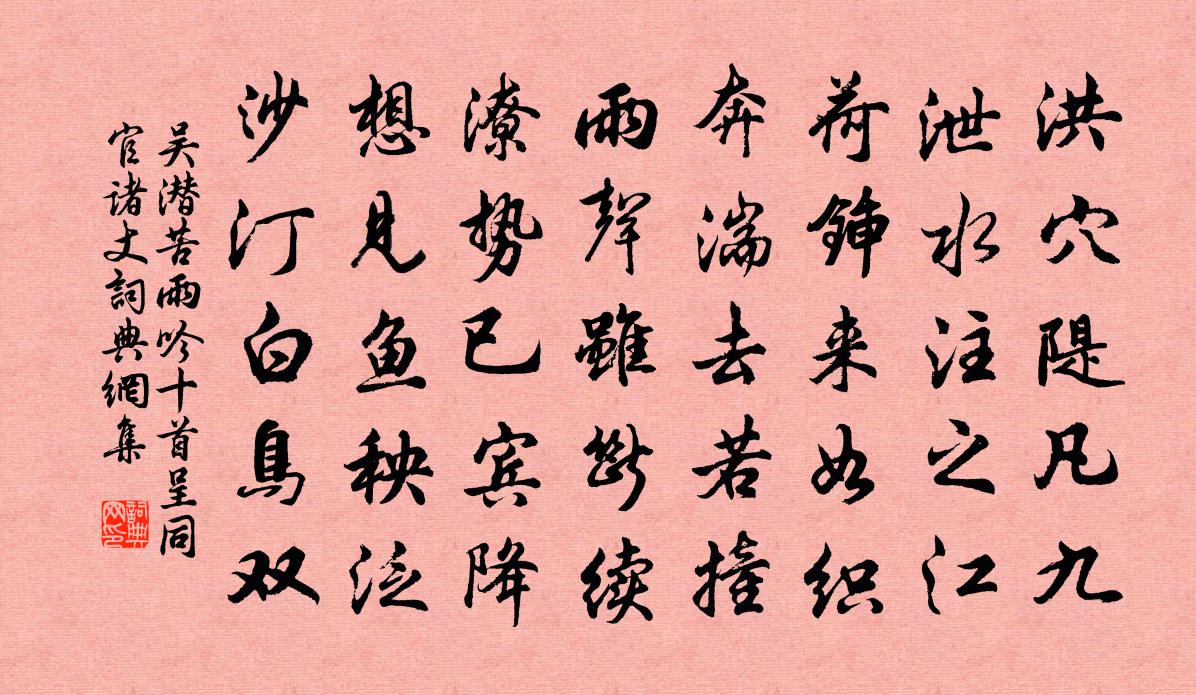 洪穴隄凡九
泄水注之江
荷鍤来如织
奔湍去若撞
雨聲雖断续
潦势已宾降
想見鱼秧泛
沙汀白鳥双
吴潜苦雨吟十首呈同
官诸丈詞典網集
詞典网印